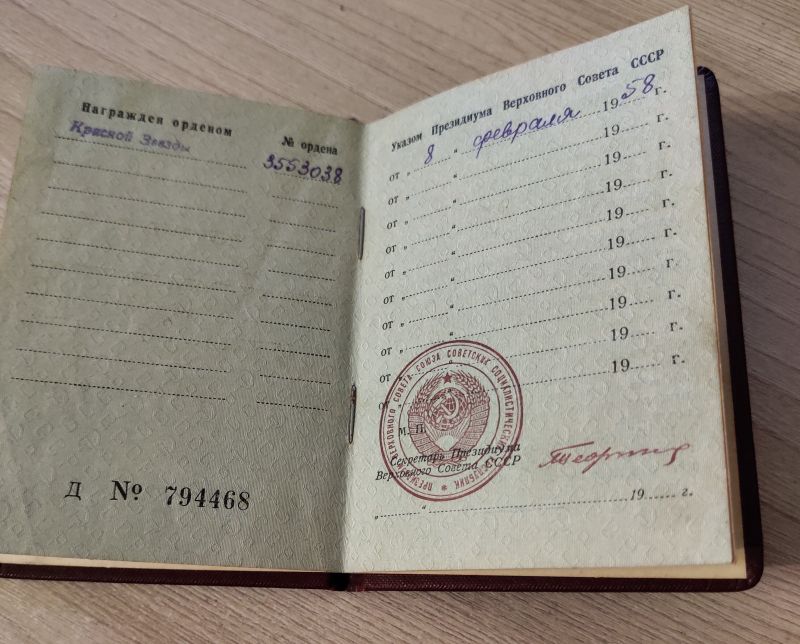 Награжден орденом
№ ордена
Красной Звезды
3553038
Д № 794468
Указом Президиума Верховного Совета СССР
от „ 8 “ февраля 1958 г.
от „ “ 19 г.
от „ “ 19 г.
от „ “ 19 г.
от „ “ 19 г.
от „ “ 19 г.
от „ “ 19 г.
от „ “ 19 г.
от „ “ 19 г.
М. П.
Секретарь Президиума
Верховного Совета СССР
„ “ 19 г.
ВЕРХОВНОГО СОВЕТА СОЮЗА СОВЕТСКИХ СОЦИАЛИСТИЧЕСКИХ